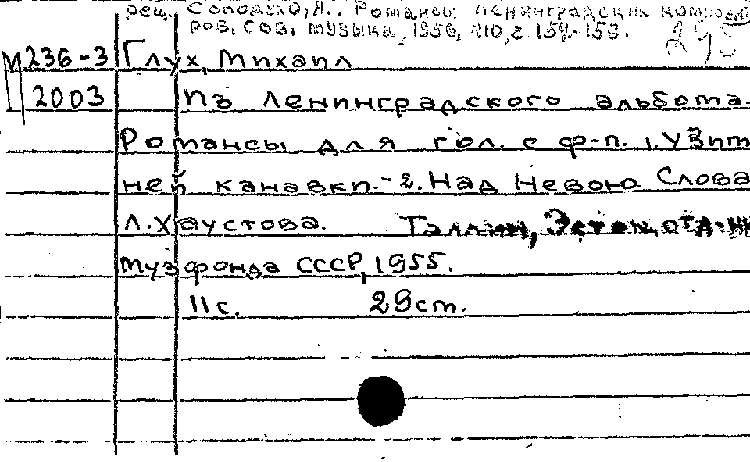 рец. Солодухо, Я.. Романсы ленинградских композито
ров. Сов. музыка, 1956, №10, с. 154-159.
М 236-3 Глух, Михаил
2003 Из Ленинградского альбома.
Романсы для гол. с ф-п. 1. У Зим
ней канавки.-2. Над Невою Слова
Л. Хаустова. Таллин, Эстон. отд-ни
Музфонда СССР, 1955.
11с. 29см.